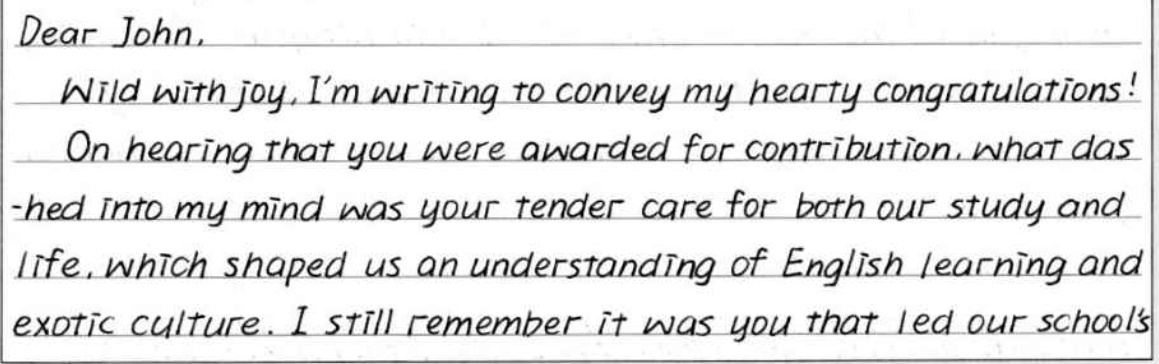 Dear John,
Wild with joy, I'm writing to convey my hearty congratulations!
On hearing that you were awarded for contribution, what das
-hed into my mind was your tender care for both our study and
life, which shaped us an understanding of English learning and
exotic culture. I still remember it was you that led our school's